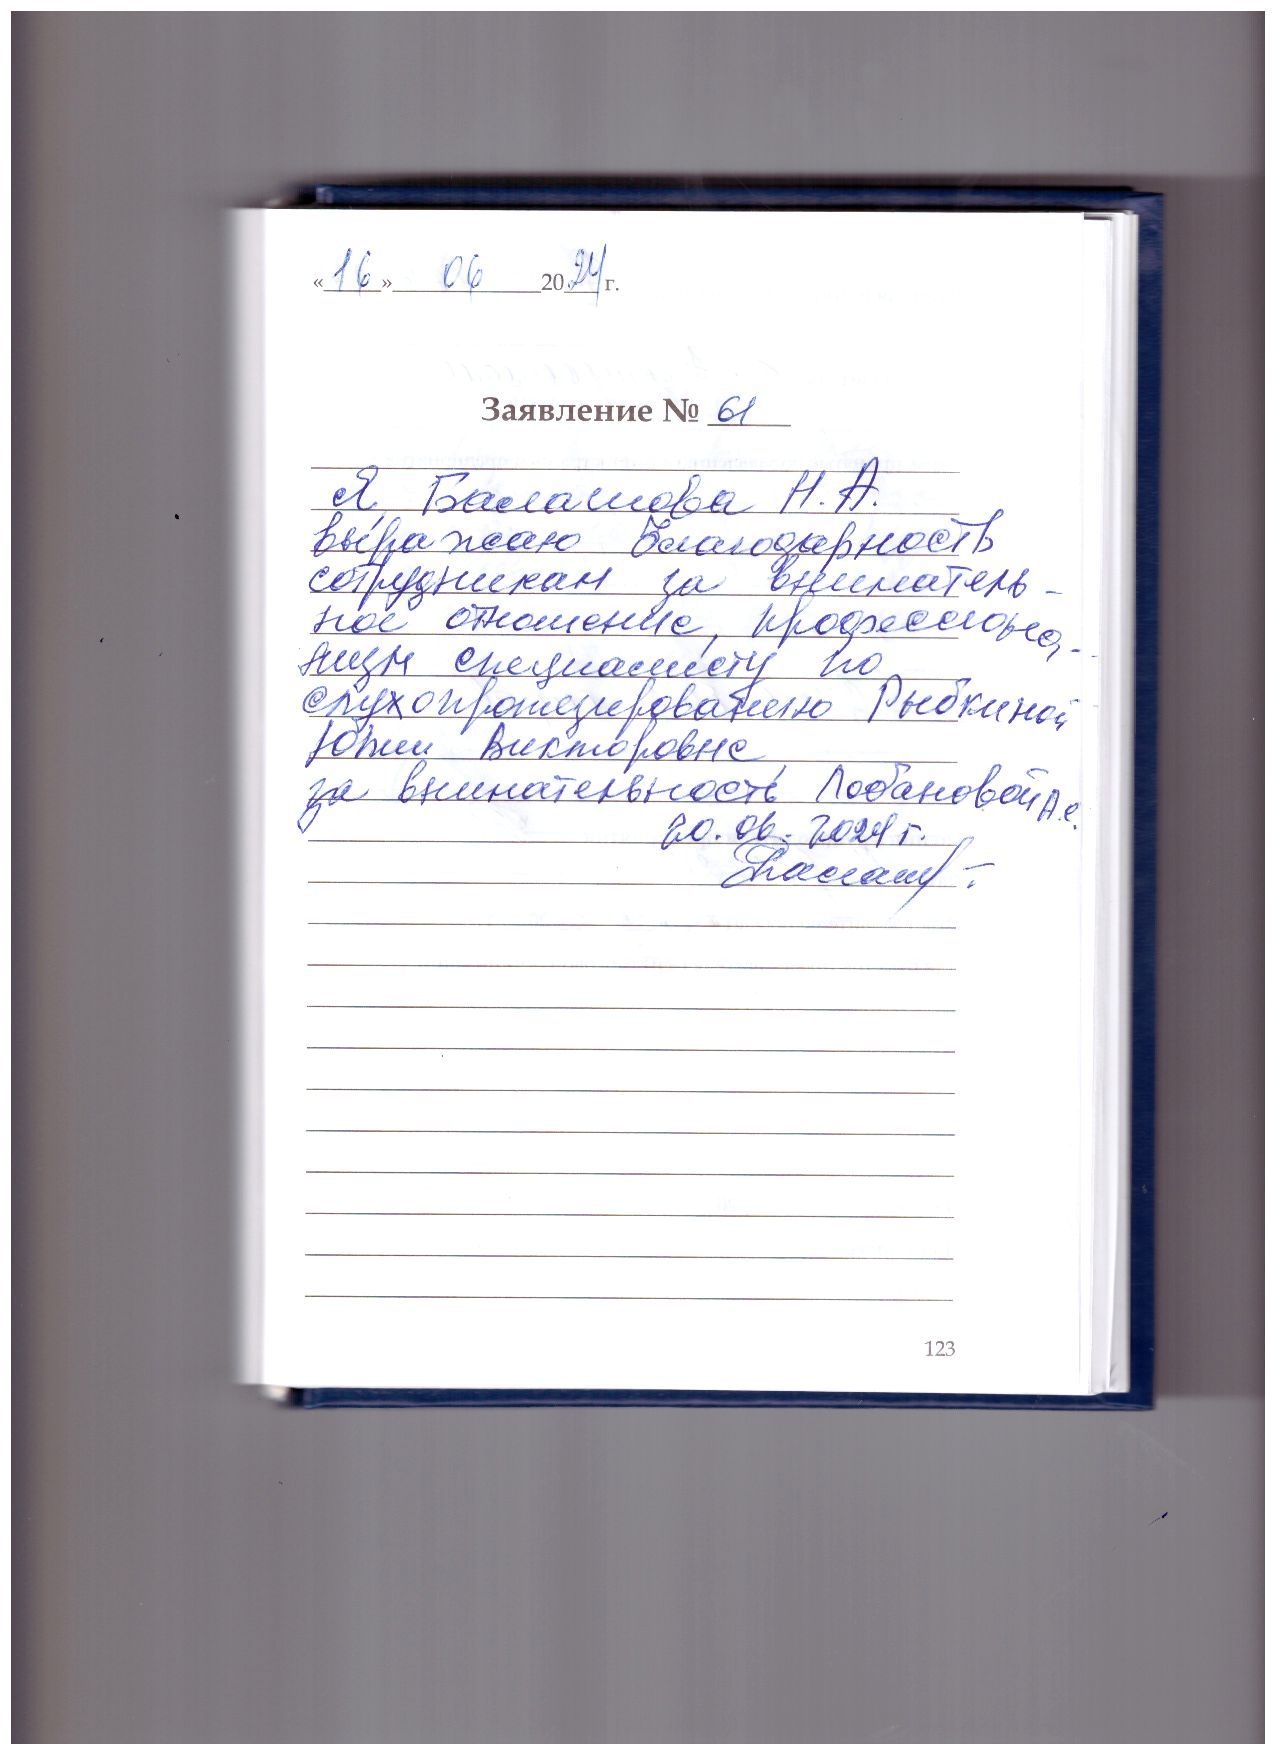 «16» 06 2024 г.
Заявление № 61
Я, Балашова Н.А.
выражаю благодарность
сотрудникам за вниматель-
ное отношение, профессиона-
лизм специалисту по
слухопротезированию Рыбкиной
Юлии Викторовне,
за внимательность Лобановой А.С.
20.06.2024 г.
Балаш
123